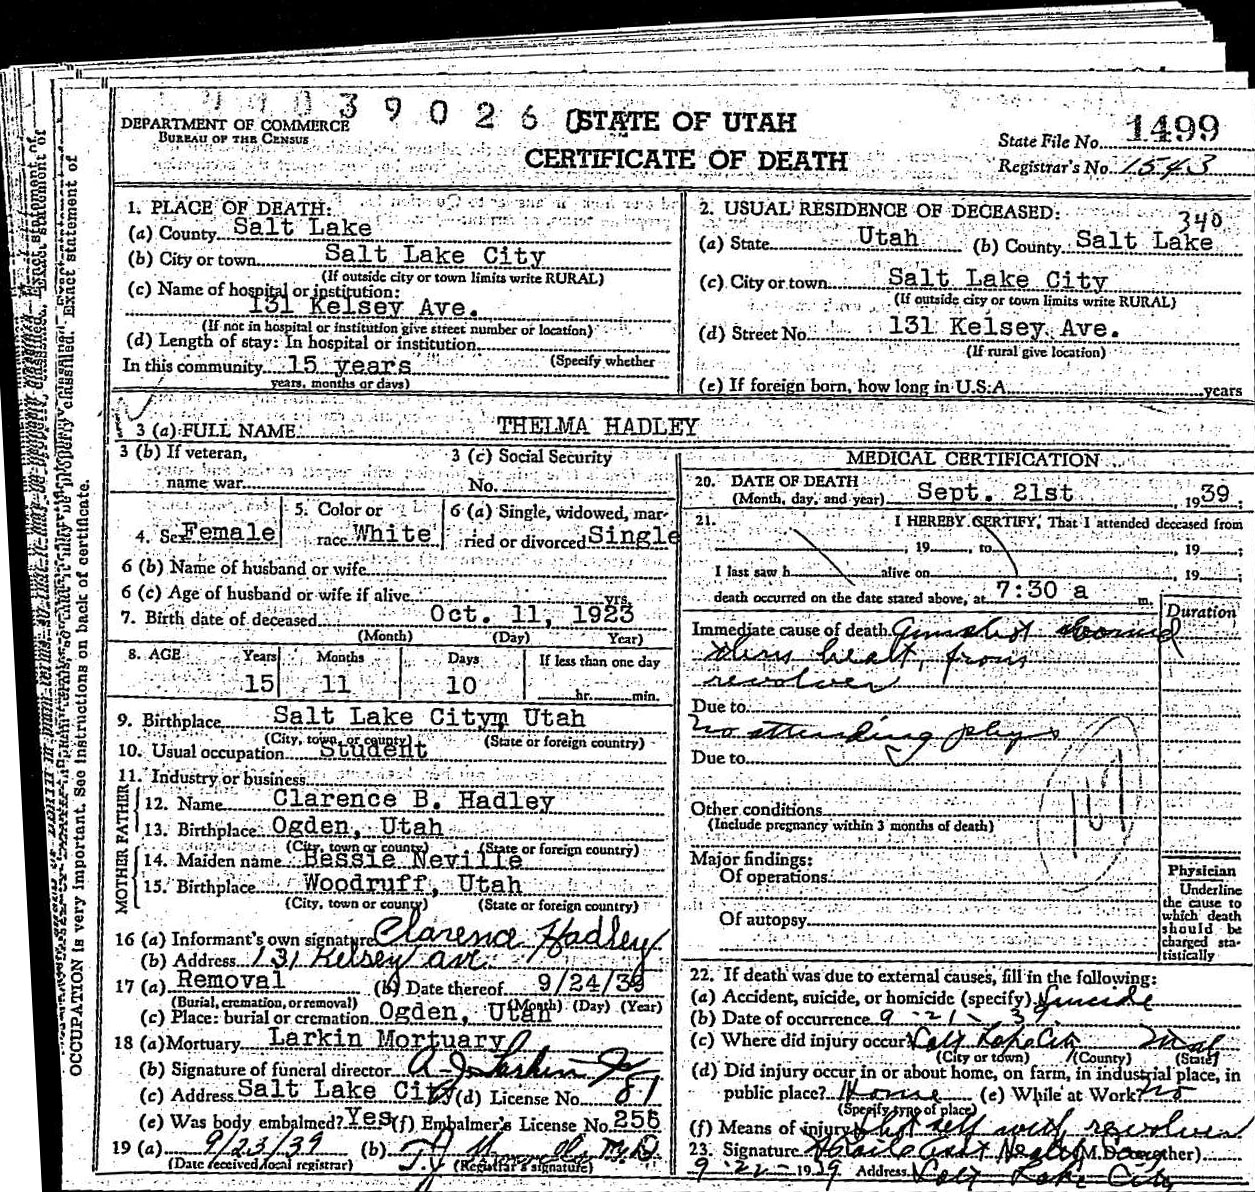 39026
DEPARTMENT OF COMMERCE
BUREAU OF THE CENSUS
STATE OF UTAH
CERTIFICATE OF DEATH
State File No. 1499
Registrar's No. 1543
1. PLACE OF DEATH:
(a) County Salt Lake
(b) City or town Salt Lake City
(If outside city or town limits write RURAL)
(c) Name of hospital or institution:
131 Kelsey Ave.
(If not in hospital or institution give street number or location)
(d) Length of stay: In hospital or institution
(Specify whether
In this community 15 years
years, months or days)
2. USUAL RESIDENCE OF DECEASED:
340
(a) State Utah (b) County Salt Lake
(c) City or town Salt Lake City
(If outside city or town limits write RURAL)
(d) Street No. 131 Kelsey Ave.
(If rural give location)
(e) If foreign born, how long in U.S.A. years
3 (a) FULL NAME THELMA HADLEY
3 (b) If veteran,
name war
3 (c) Social Security
No.
4. Sex Female
5. Color or
race White
6 (a) Single, widowed, mar-
ried or divorced Single
6 (b) Name of husband or wife
6 (c) Age of husband or wife if alive yrs.
7. Birth date of deceased Oct. 11, 1923
(Month) (Day) Year)
8. AGE Years Months Days If less than one day
15 11 10 hr. min.
9. Birthplace Salt Lake City, Utah
(City, town, or county) (State or foreign country)
10. Usual occupation Student
11. Industry or business
FATHER
12. Name Clarence B. Hadley
13. Birthplace Ogden, Utah
(City, town or county) (State or foreign country)
MOTHER
14. Maiden name Bessie Neville
15. Birthplace Woodruff, Utah
(City, town or county) (State or foreign country)
16 (a) Informant's own signature Clarence Hadley
(b) Address 131 Kelsey ave.
17 (a) Removal (b) Date thereof 9/24/39
(Burial, cremation, or removal) (Month) (Day) (Year)
(c) Place: burial or cremation Ogden, Utah
18 (a) Mortuary Larkin Mortuary
(b) Signature of funeral director A. J. Larkin Jr
(c) Address Salt Lake City (d) License No. 81
(e) Was body embalmed? Yes (f) Embalmer's License No. 256
19 (a) 9/23/39 (b) M.D.
(Date received local registrar) (Registrar's signature)
MEDICAL CERTIFICATION
20. DATE OF DEATH
(Month, day, and year) Sept. 21st 1939;
21. I HEREBY CERTIFY, That I attended deceased from
, 19 , to , 19 ;
I last saw h alive on , 19 ;
death occurred on the date stated above, at 7:30 a m.
Duration
Immediate cause of death Gunshot wound
thru heart, from
revolver
Due to
No attending phys
Due to
Other conditions
(Include pregnancy within 3 months of death)
Major findings:
Of operations
Of autopsy
Physician
Underline
the cause to
which death
should be
charged sta-
tistically
22. If death was due to external causes, fill in the following:
(a) Accident, suicide, or homicide (specify) Suicide
(b) Date of occurrence 9-21-39
(c) Where did injury occur? Salt Lake City Utah
(City or town) (County) (State)
(d) Did injury occur in or about home, on farm, in industrial place, in
public place? Home (e) While at Work? no
(Specify type of place)
(f) Means of injury Shot self with revolver
23. Signature Health (M.D. or other)
9-22-1939 Address Salt Lake City
OCCUPATION is very important. See instructions on back of certificate.
classified. Exact statement of